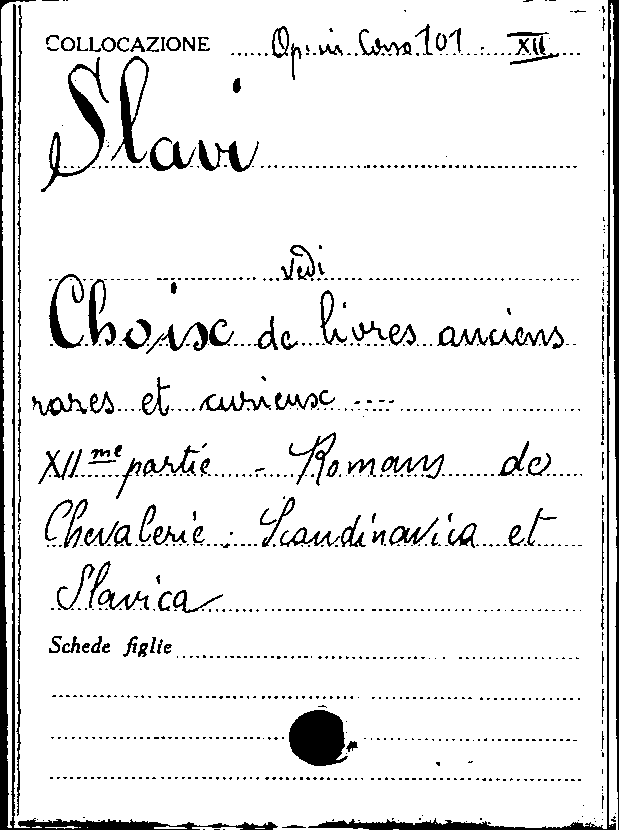 COLLOCAZIONE Op. in Corso 101. XII
Slavi
vedi
Choix de livres anciens
rares et curieux ----
XII me partie - Romans de
Chevalerie : Scandinavica et
Slavica
Schede figlie